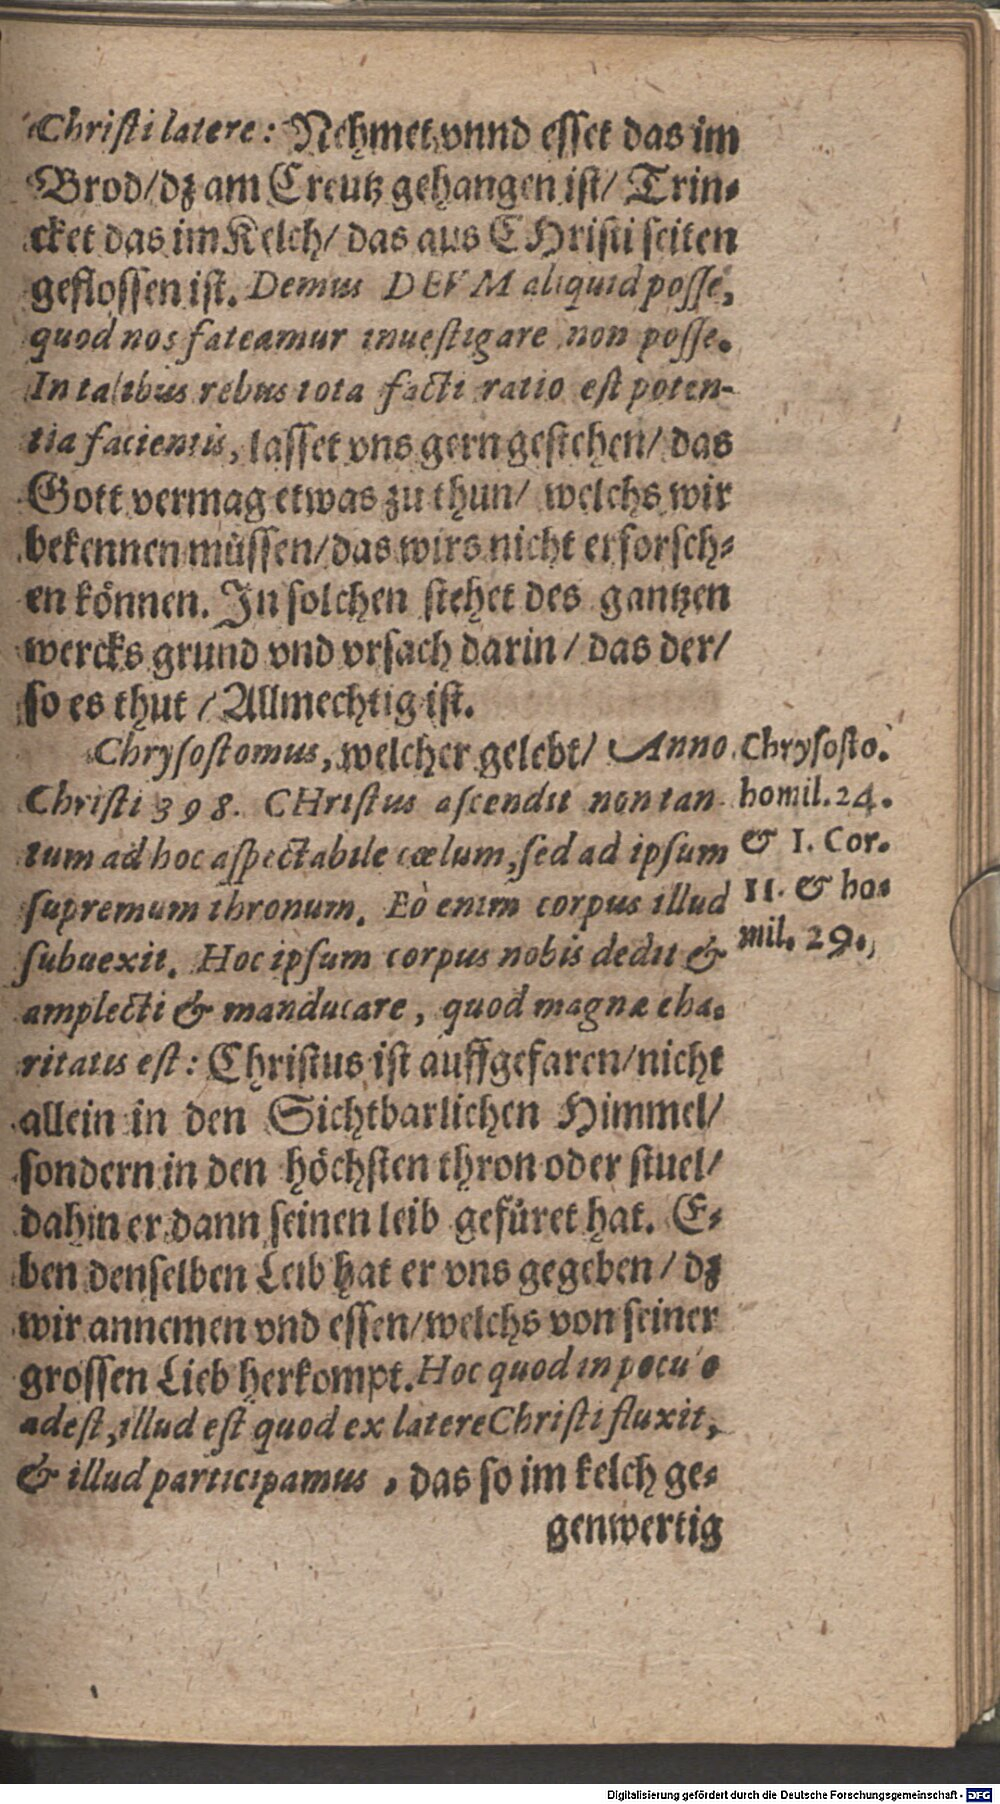 Christi latere: Nehmet vnnd esset das im
Brod/dz am Creutz gehangen ist/ Trin-
cket das im Kelch/ das aus CHristi seiten
geflossen ist. Demus DEVM aliquid posse,
quod nos fateamur inuestigare non posse.
In talibus rebus tota facti ratio est poten-
tia facientis, lasset vns gern gestehen/ das
Gott vermag etwas zu thun/ welchs wir
bekennen müssen/das wirs nicht erforsch-
en können. In solchen stehet des gantzen
wercks grund vnd vrsach darin / das der/
so es thut / Allmechtig ist.
Chrysostomus, welcher gelebt/ Anno
Christi 398. CHristus ascendit non tan
tum ad hoc aspectabile cœlum, sed ad ipsum
supremum thronum. Eò enim corpus illud
subuexit. Hoc ipsum corpus nobis dedit &
amplecti & manducare, quod magnæ cha-
ritatis est: Christus ist auffgefaren/nicht
allein in den Sichtbarlichen Himmel/
sondern in den höchsten thron oder stuel/
dahin er dann seinen leib gefüret hat. E-
ben denselben Leib hat er vns gegeben / dz
wir annemen vnd essen/welchs von seiner
grossen Lieb herkompt. Hoc quod in pocu o
adest, illud est quod ex latere Christi fluxit,
& illud participamus, das so im kelch ge-
genwertig
Chrysosto.
homil. 24.
& I. Cor.
II. & ho-
mil. 29.
Digitalisierung gefördert durch die Deutsche Forschungsgemeinschaft - DFG